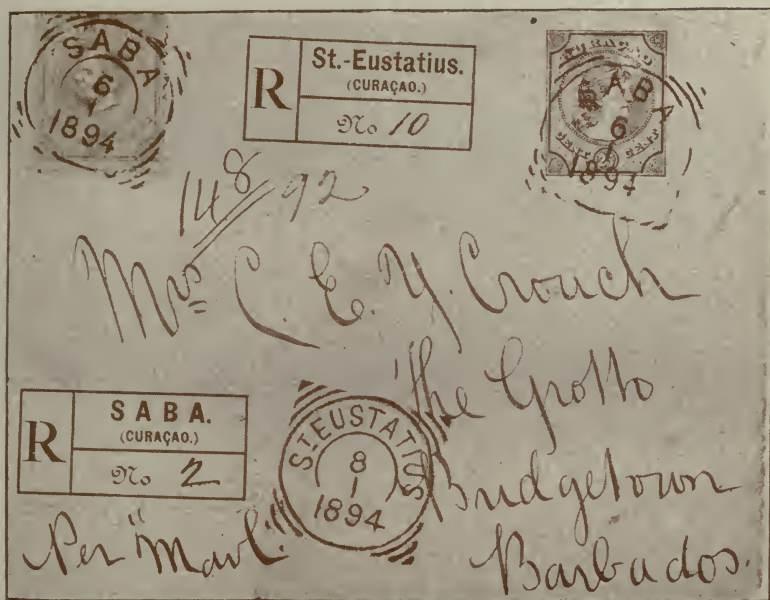 SABA
6
1
1894
R
St.-Eustatius.
(CURAÇAO.)
No 10
CURAÇAO
CENT
CENT
SABA
6
1
1894
14 8/92
Mrs C. E. Y. Crouch
The Grotto
Bridgetown
Barbados.
R
SABA.
(CURAÇAO.)
No 2
ST EUSTATIUS
8
1
1894
Per "Mail"